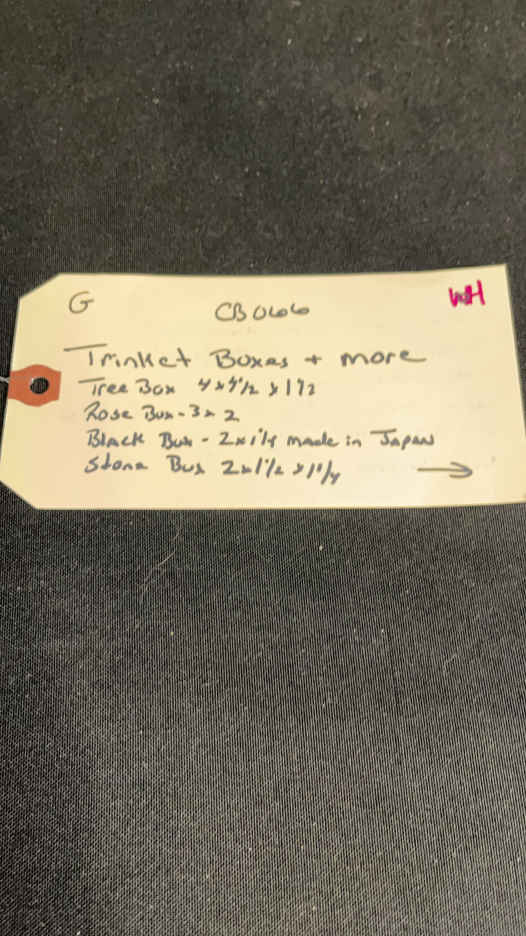 G CB066 WH
Trinket Boxes + more
Tree Box 4 x 4 1/2 x 1 1/2
Rose Box - 3 x 2
Black Box - 2 x 1 1/4 made in Japan
Stone Box 2 x 1 1/2 x 1 1/4 →